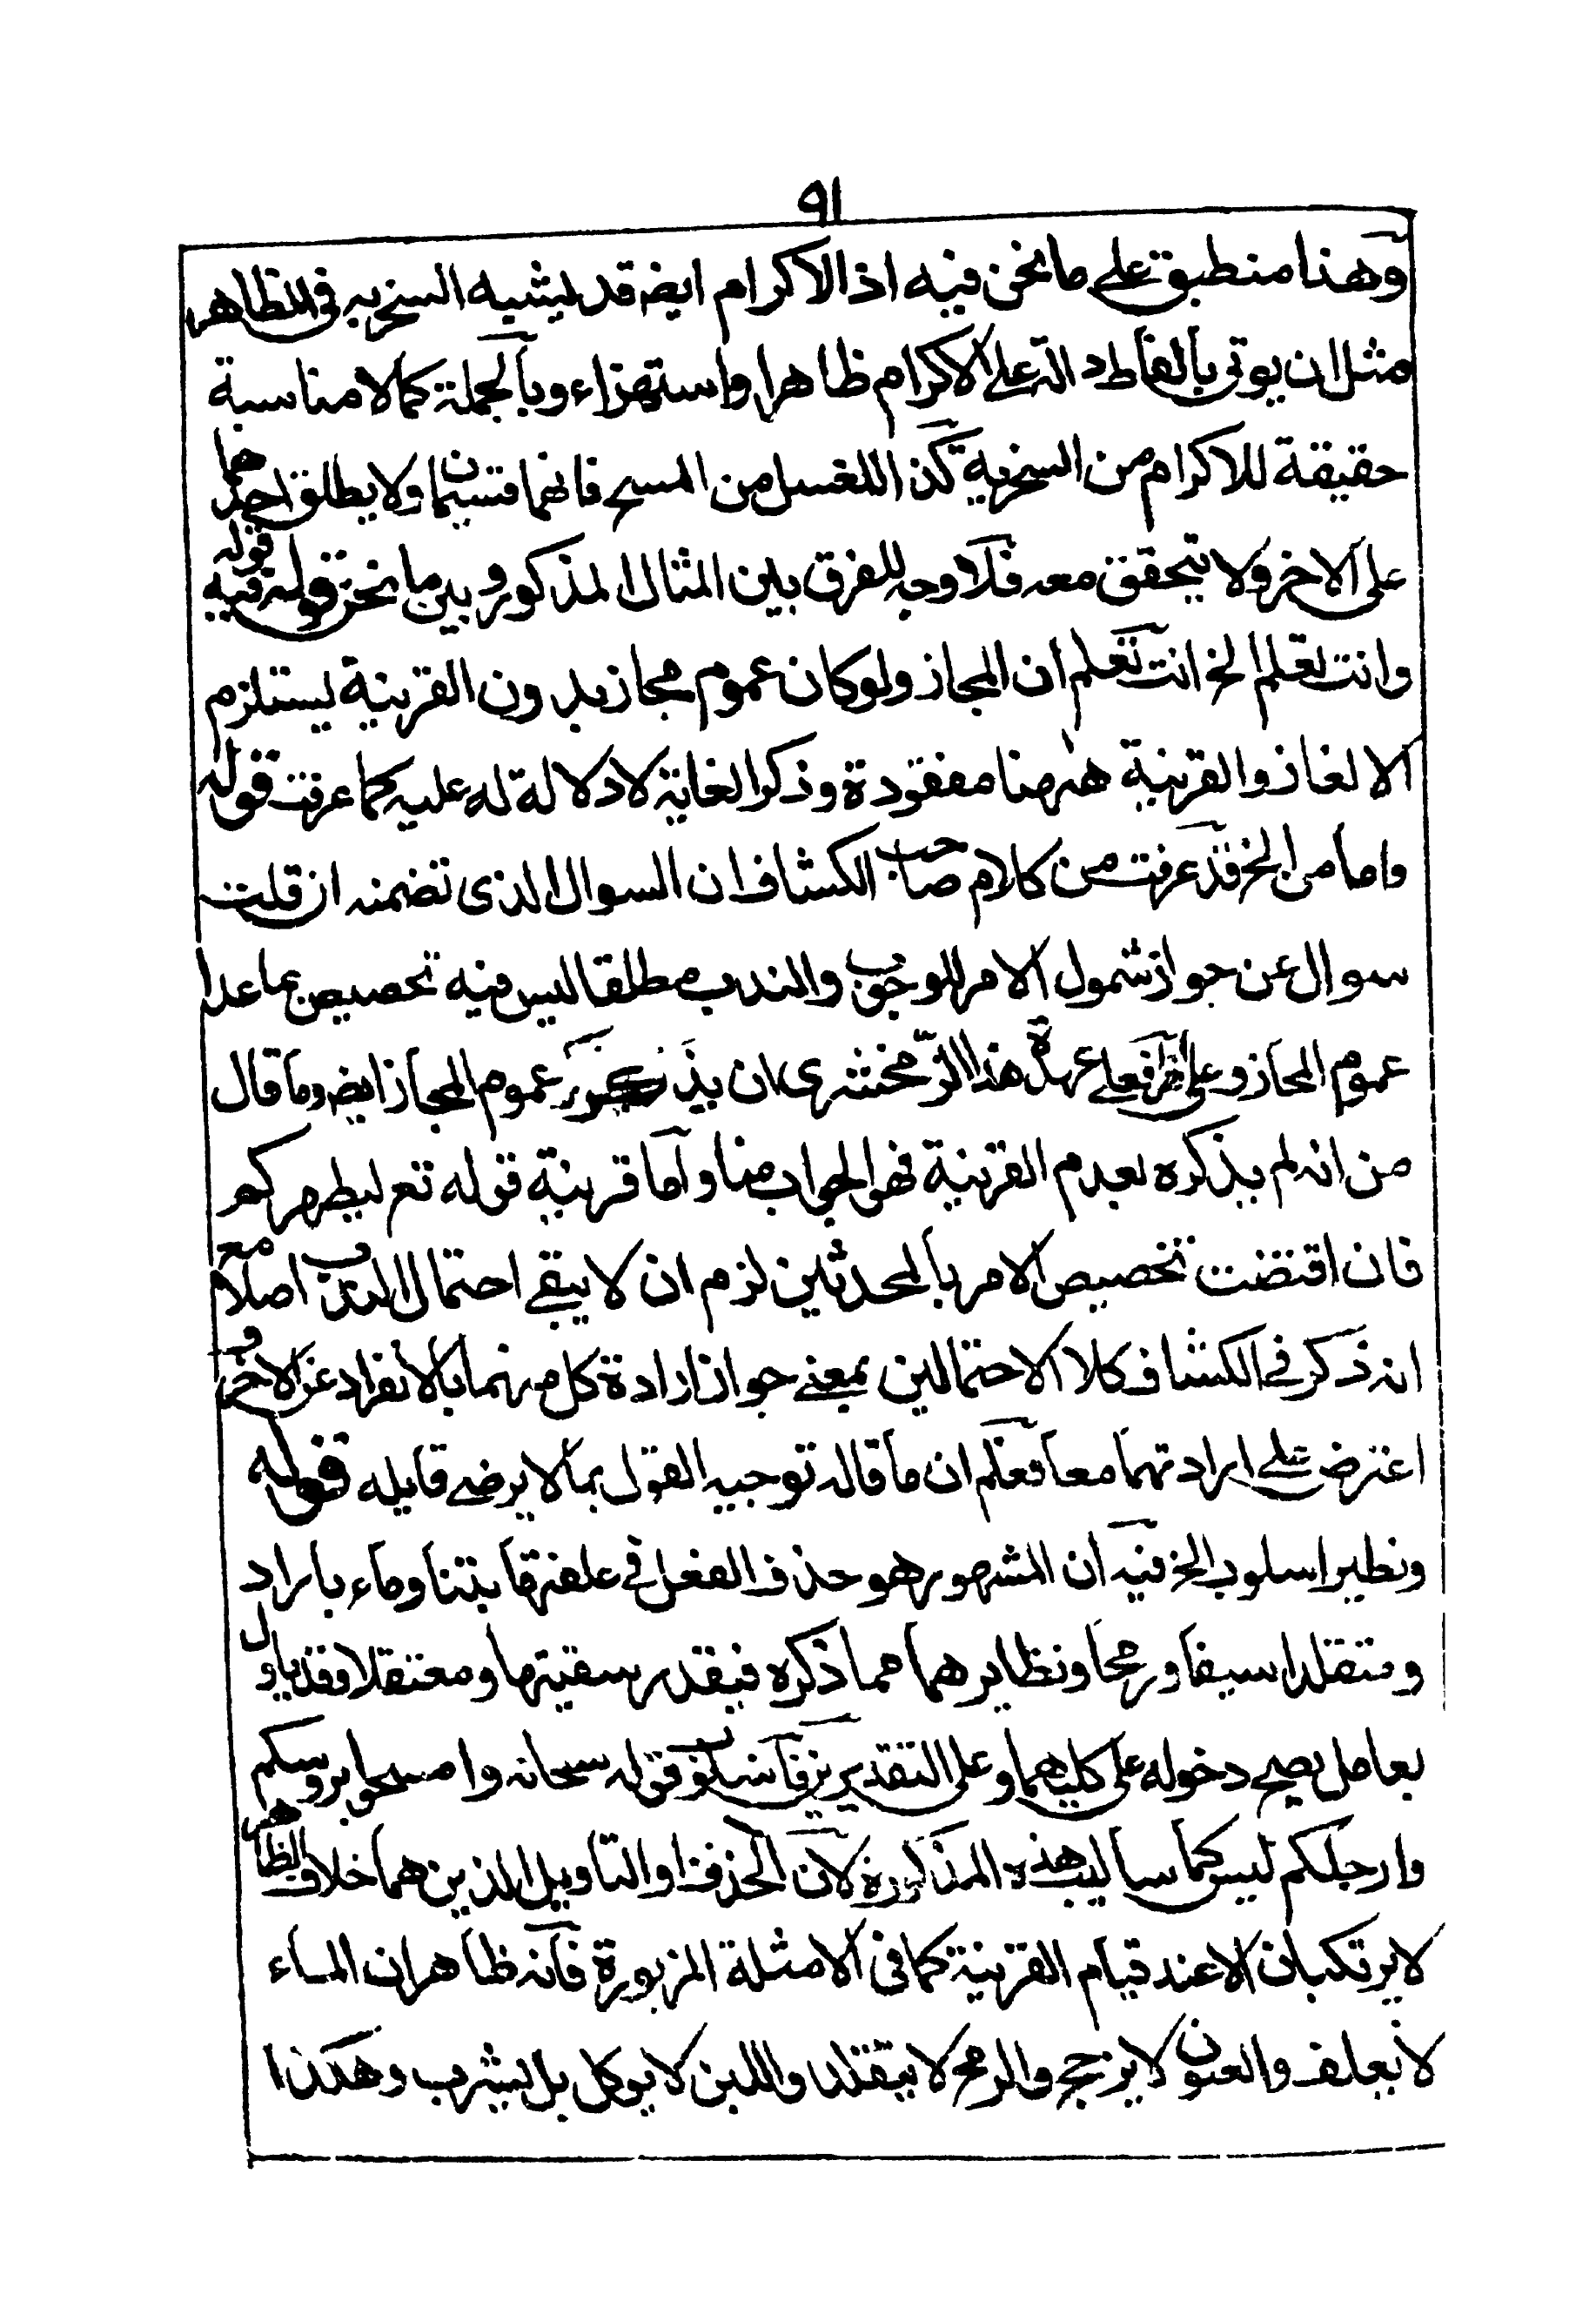 ٩١
وهذا منطبق على ما نحن فيه اذ الاكرام ايضه قد يشبه السخريه فى الظاهر
مثل ان يوتى بالفاظ دالة على الاكرام ظاهرا واستهزاء وبالجملة كما لا مناسبة
حقيقة للاكرام من السخرية كذا للغسل من المسح فانهما قسيمان ولا يطلق احدهما
على الاخر ولا يتحقق معه فلا وجه للفرق بين المثال المذكور وبين ما نحن فيه قوله
وانت تعلم الخ انت تعلم ان المجاز ولو كان عموم مجاز بدون القرينة يستلزم
الالغاز والقرينة ههنا مفقودة وذكر الغاية لا دلالة له عليه كما عرفت قوله
واما من الخ قد عرفت من كلام صاحب الكشاف ان السوال الذى تضمنه ان قلت
سوال عن جواز شمول الامر للوجوب والندب مطلقا ليس فيه تخصيص بما عدا
عموم المجاز وعلى عهدة هذا الزمخشرى ان يذكر عموم المجاز ايضه وما قال
من انه لم يذكره لعدم القرينة فهو الجواب منا واما قرينة قوله تع ليطهركم
فان اقتضت تخصيص الامر بالمحدثين لزم ان لا يبقى احتمال الندب اصلا مع
انه ذكر فى الكشاف كلا الاحتمالين بمعنى جواز ارادة كل منهما بالانفراد عن الاخر و
اعترض على ارادتهما معا فعلم ان ما قاله توجيه القول بما لا يرضى قايله قوله
ونظير اسلوب الخ فيه ان المشهور هو حذف الفعل فى علفتها تبنا وماء باردا
ومتقلدا سيفا ورمحا ونظايرهما مما ذكره فيقدر سقيتها ومعتقلا وقد ياول
بعامل يصح دخوله على كليهما وعلى التقديرين فاسلوب قوله سبحانه وامسحوا بروسكم
وارجلكم ليس كاساليب هذه المذكورة لان الحذف او التاويل الذين هما خلاف الظاهر
لا يرتكبان الا عند قيام القرينة كما فى الامثلة المزبورة فانه ظاهر ان الماء
لا يعلف والعيون لا يزجج والرمح لا يتقلد واللبن لا يوكل بل يشرب وهكذا